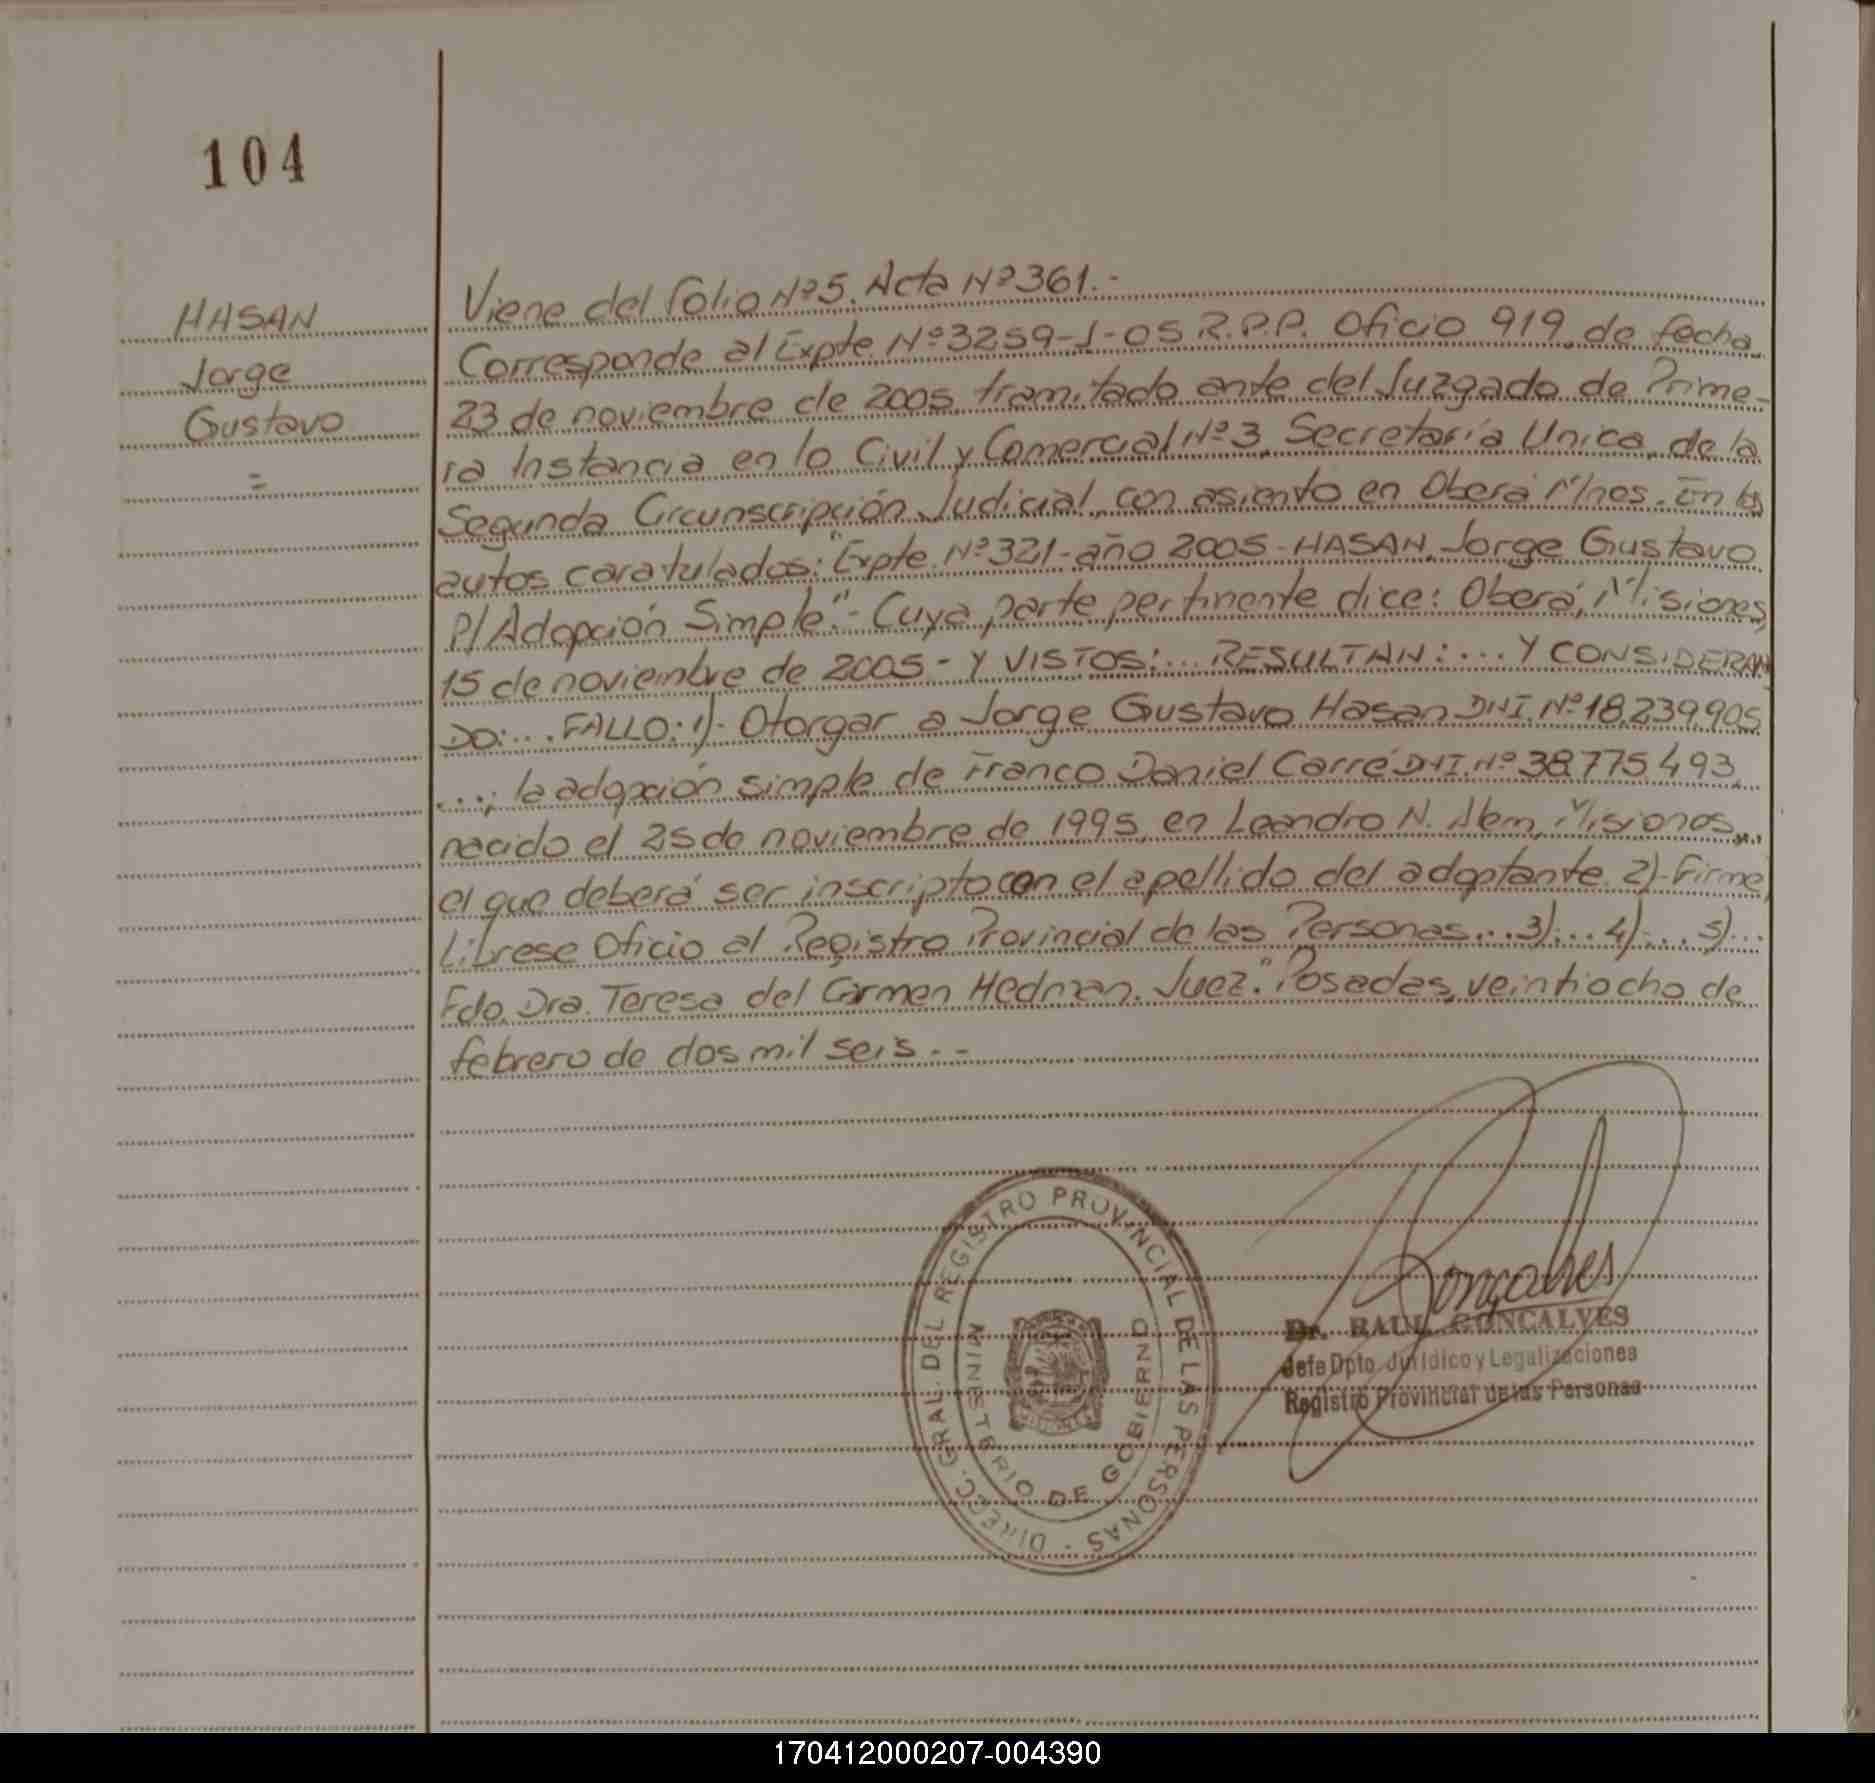 104
HASAN
Jorge
Gustavo
=
Viene del folio Nº5. Acta Nº361.-
Corresponde al Expte. Nº3259-J-05 R.P.P. Oficio 919, de fecha
23 de noviembre de 2005, tramitado ante del Juzgado de Prime-
ra Instancia en lo Civil y Comercial Nº3, Secretaría Unica, de la
Segunda Circunscripción Judicial, con asiento en Oberá Mnes. En los
autos caratulados: "Expte. Nº321-año 2005-HASAN, Jorge Gustavo
p/Adopción Simple".- Cuya parte pertinente dice: Oberá, Misiones,
15 de noviembre de 2005- Y VISTOS:... RESULTAN:... Y CONSIDERAN
DO:... FALLO: 1)- Otorgar a Jorge Gustavo Hasan DNI. Nº18.239.905
...; la adopción simple de Franco Daniel Carré DNI. Nº38.775.493,
nacido el 25 de noviembre de 1995, en Leandro N. Alem, Misiones...
el que deberá ser inscripto con el apellido del adoptante. 2)-Firme,
Líbrese Oficio al Registro Provincial de las Personas...3)...4)...5)...
Fdo. Dra. Teresa del Carmen Hedman. Juez." Posadas, veintiocho de
febrero de dos mil seis.--
DIRECC. GRAL. DEL REGISTRO PROVINCIAL DE LAS PERSONAS -
MINISTERIO DE GOBIERNO
Gonçalves
Dr. RAUL GONCALVES
Jefe Dpto. Jurídico y Legalizaciones
Registro Provincial de las Personas
170412000207-004390